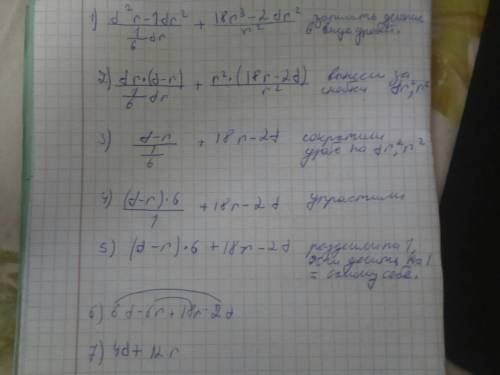 1) (d²r - 1dr²)/(1/6 dr) + (18r³ - 2dr²)/r² записать деление в виде дроби.
2) (dr·(d-r))/(1/6 dr) + (r²·(18r-2d))/r² вынесли за скобки dr, r²
3) (d-r)/(1/6) + 18r - 2d сократили дробь на dr, r²
4) ((d-r)·6)/1 + 18r - 2d упрастили
5) (d-r)·6 + 18r - 2d разделим на 1, = самому себе.
6) 6d - 6r + 18r - 2d
7) 4d + 12r